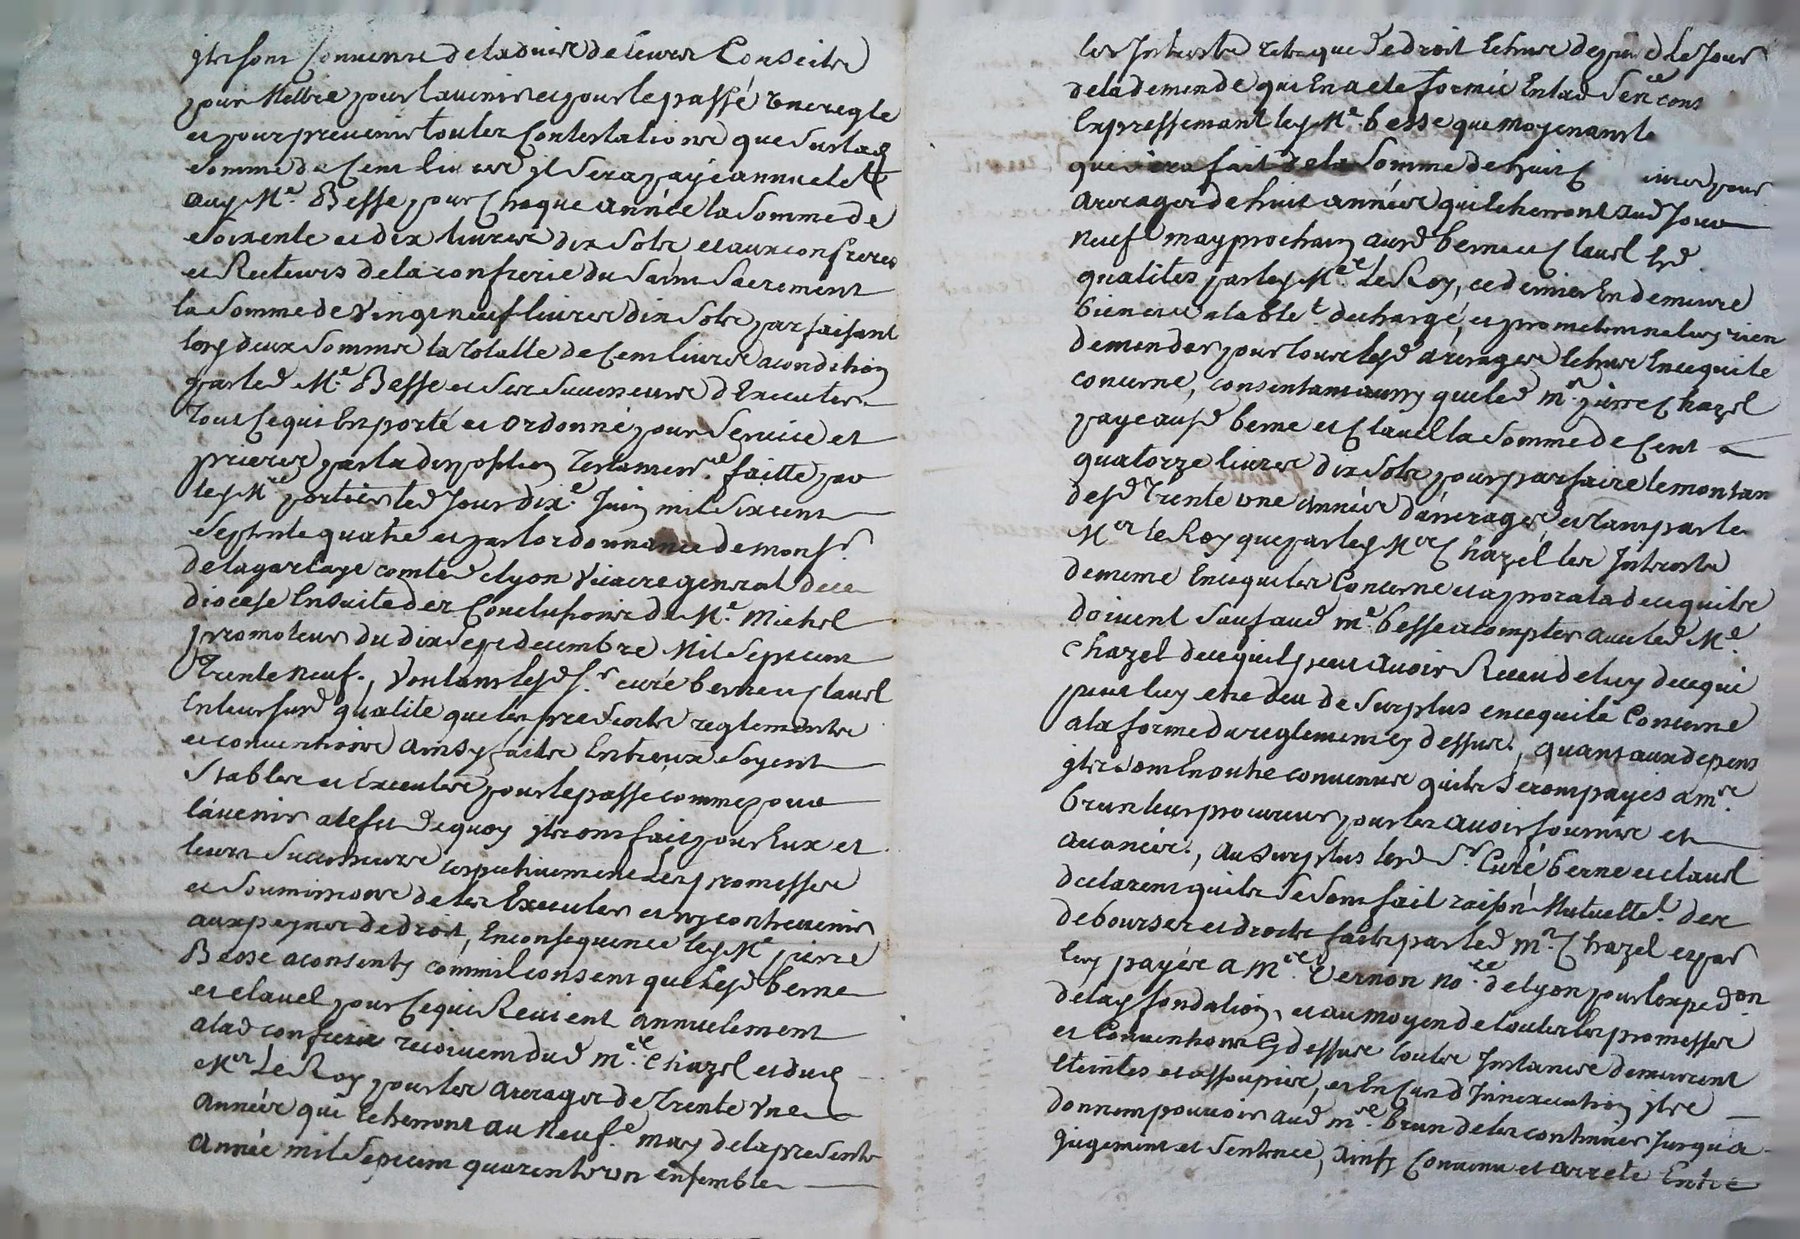 ils sont convenus de ladvire de leurs Conseils
pour Mettre pour lavenir et pour le passé une regle
et pour prevenir toutes Contestations que sur lad
somme de Cent livres jl sera payé annuelet
auy Me. Besse pour Chaque année la somme de
soixente et dix livres dix sols et aux confreres
et Recteurs de la confrerie du Saint Sacrement
la somme de vingt neuf livres dix sols parfaisant
lesd deux sommes la totalle de Cent livres a condition
par led Me. Besse et ses successeurs d'Executer
tout ce qui En porté et ordonné pour Service et
prieres par la disposition Testamenre faitte par
ley Mre portier led Jour dixe. Juin mil six cent
Septente quatre et par lordonnance de monsr.
de lagarlaye comte d lyon vicaire general de ce
diocese Ensuite des Conclusions de Me. Michel
promoteur du dix Sept decembre Mil Sept cent
Trente neuf., voulant lesd Sr curé berne et Clavel
En leur susd qualite que les presents reglements
et conventions ainsy faits Entreux soyent
Stables et Executés pour le passé comme pour
lávenir a lefet de quoy ils ont fait pour Eux et
leurs Successeurs respectivement les promesses
et soumissions de les Executer et ny contrevenir
aux peynes de droit, En consequence ley Me pierre
Besse a consenty comm il consent que lesd berne
et clavel pour ce qui Revient annuelement
a lad confrerie recoivent dud mre Chazel et dud
Mr Le Roy pour les arerages de Trente Une
années qui Echerront au Neufe. may de la presente
année mil Sept cent quarente un ensemble
les Interests tels que de droit Echus depuis le Jour
de la demende qui En a ete formée En lad Senced cons
Expressement ley Me. besse que moyenant le
qui sera fait de la Somme de huit C ivres pour
arerages de huit années qui Echerront aud Jour
neuf may prochain ausd berne et Clavel esd
qualites par ley Mre Le Roy, ce dernier En demeure
bien et valablet. décharge, et prometent ne luy rien
demender pour tous lesd arerages Echus En ce qui le
concerne, consentant aussy que led mr. pierre Chazel
paye ausd berne et Clavel la Somme de Cent
quatorze livres dix Sols pour parfaire le montan
desd Trente une années dárerages, et tant par le
Mr le Roy que par ley Mre Chazel les Interests
de meme En ce qui les Concerne et a prorata de ce quils
doivent Sauf aud me. besse a compter avec led Me.
Chazel de ce quil peut avoir Receu de luy de ce qui
peut luy etre deu de Surplus en ce qui le Concerne
a la forme du reglement cy dessus, quant aux depens
ils sont En outre convenus quils seront payés a mre.
brun leur procureur pour les avoir fournis et
avancés., au surplus lesd Sr. Curé berne et clavel
declarent quils se sont fait raison Mutuellet. des
debourses et droits faits par led mr. Chazel et par
luy payés a mre. Vernon nore. de lyon pour lexpedon.
de lay fondation, et au moyen de toutes les promesses
et Conventions Cy dessus toutes Instances demeurent
éteintes et assoupies, et En Cas d'inexecution ils
donnent pouvoir aud mre. brun de les continuer Jusqu'a
Jugement et Sentence, ainsy Convenu et arreté Entre